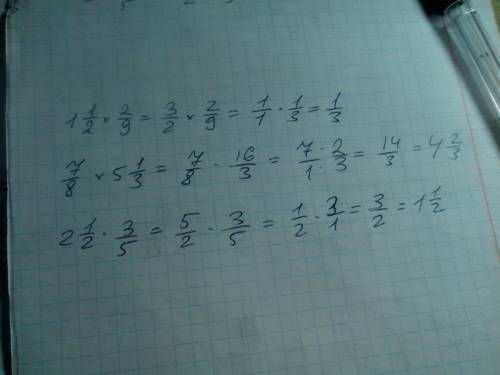 1 1/2 × 2/9 = 3/2 × 2/9 = 1/1 · 1/3 = 1/3
7/8 × 5 1/3 = 7/8 · 16/3 = 7/1 · 2/3 = 14/3 = 4 2/3
2 1/2 · 3/5 = 5/2 · 3/5 = 1/2 · 3/1 = 3/2 = 1 1/2